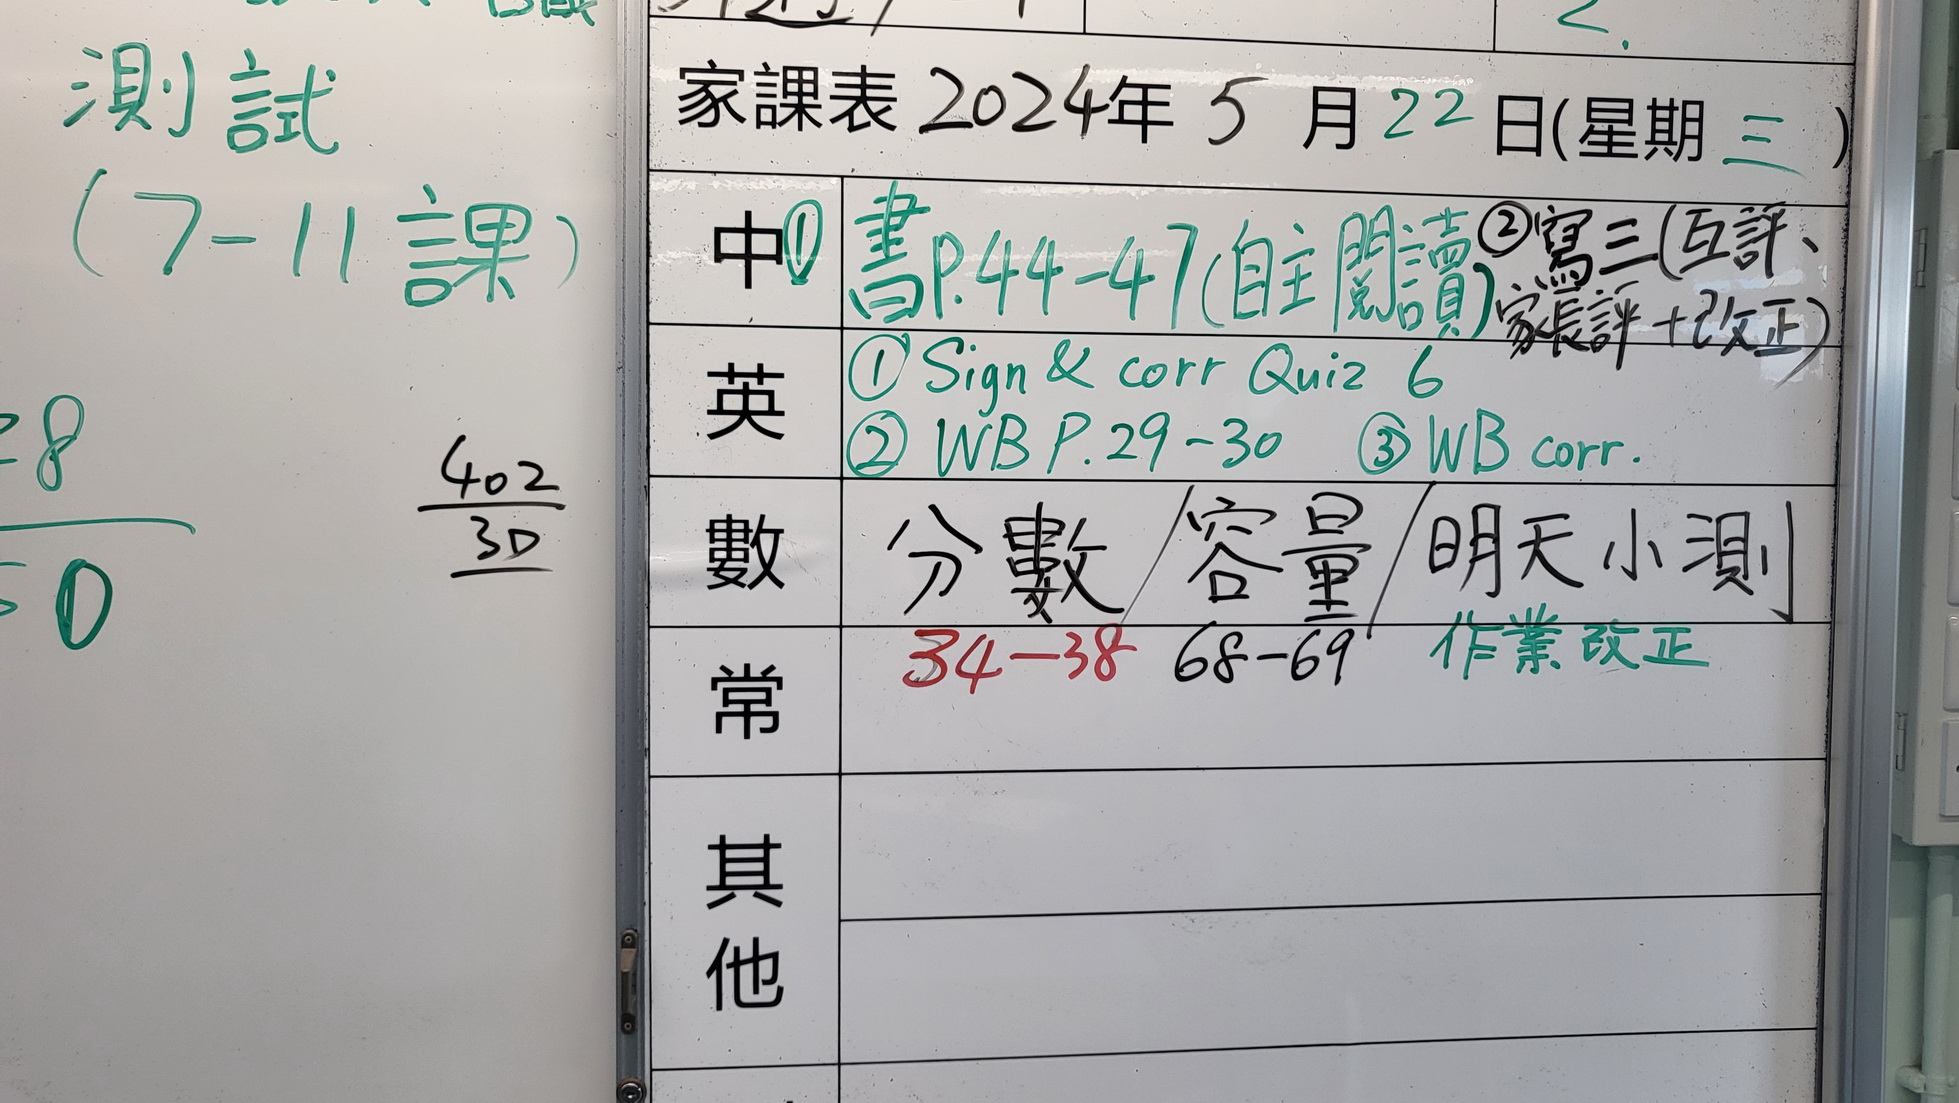 測試
(7-11課)
402
30
2.
家課表2024年5月22日(星期三)
中①書P.44-47(自主閱讀)②寫三(互評、
家長評+改正)
英
①Sign & corr Quiz 6
②WB P.29-30 ③WB corr.
數 分數/容量/明天小測
34-38 68-69 作業改正
常
其
他